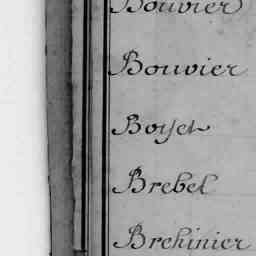 Bouvier
Bouvier
Boyet
Brebel
Brehinier